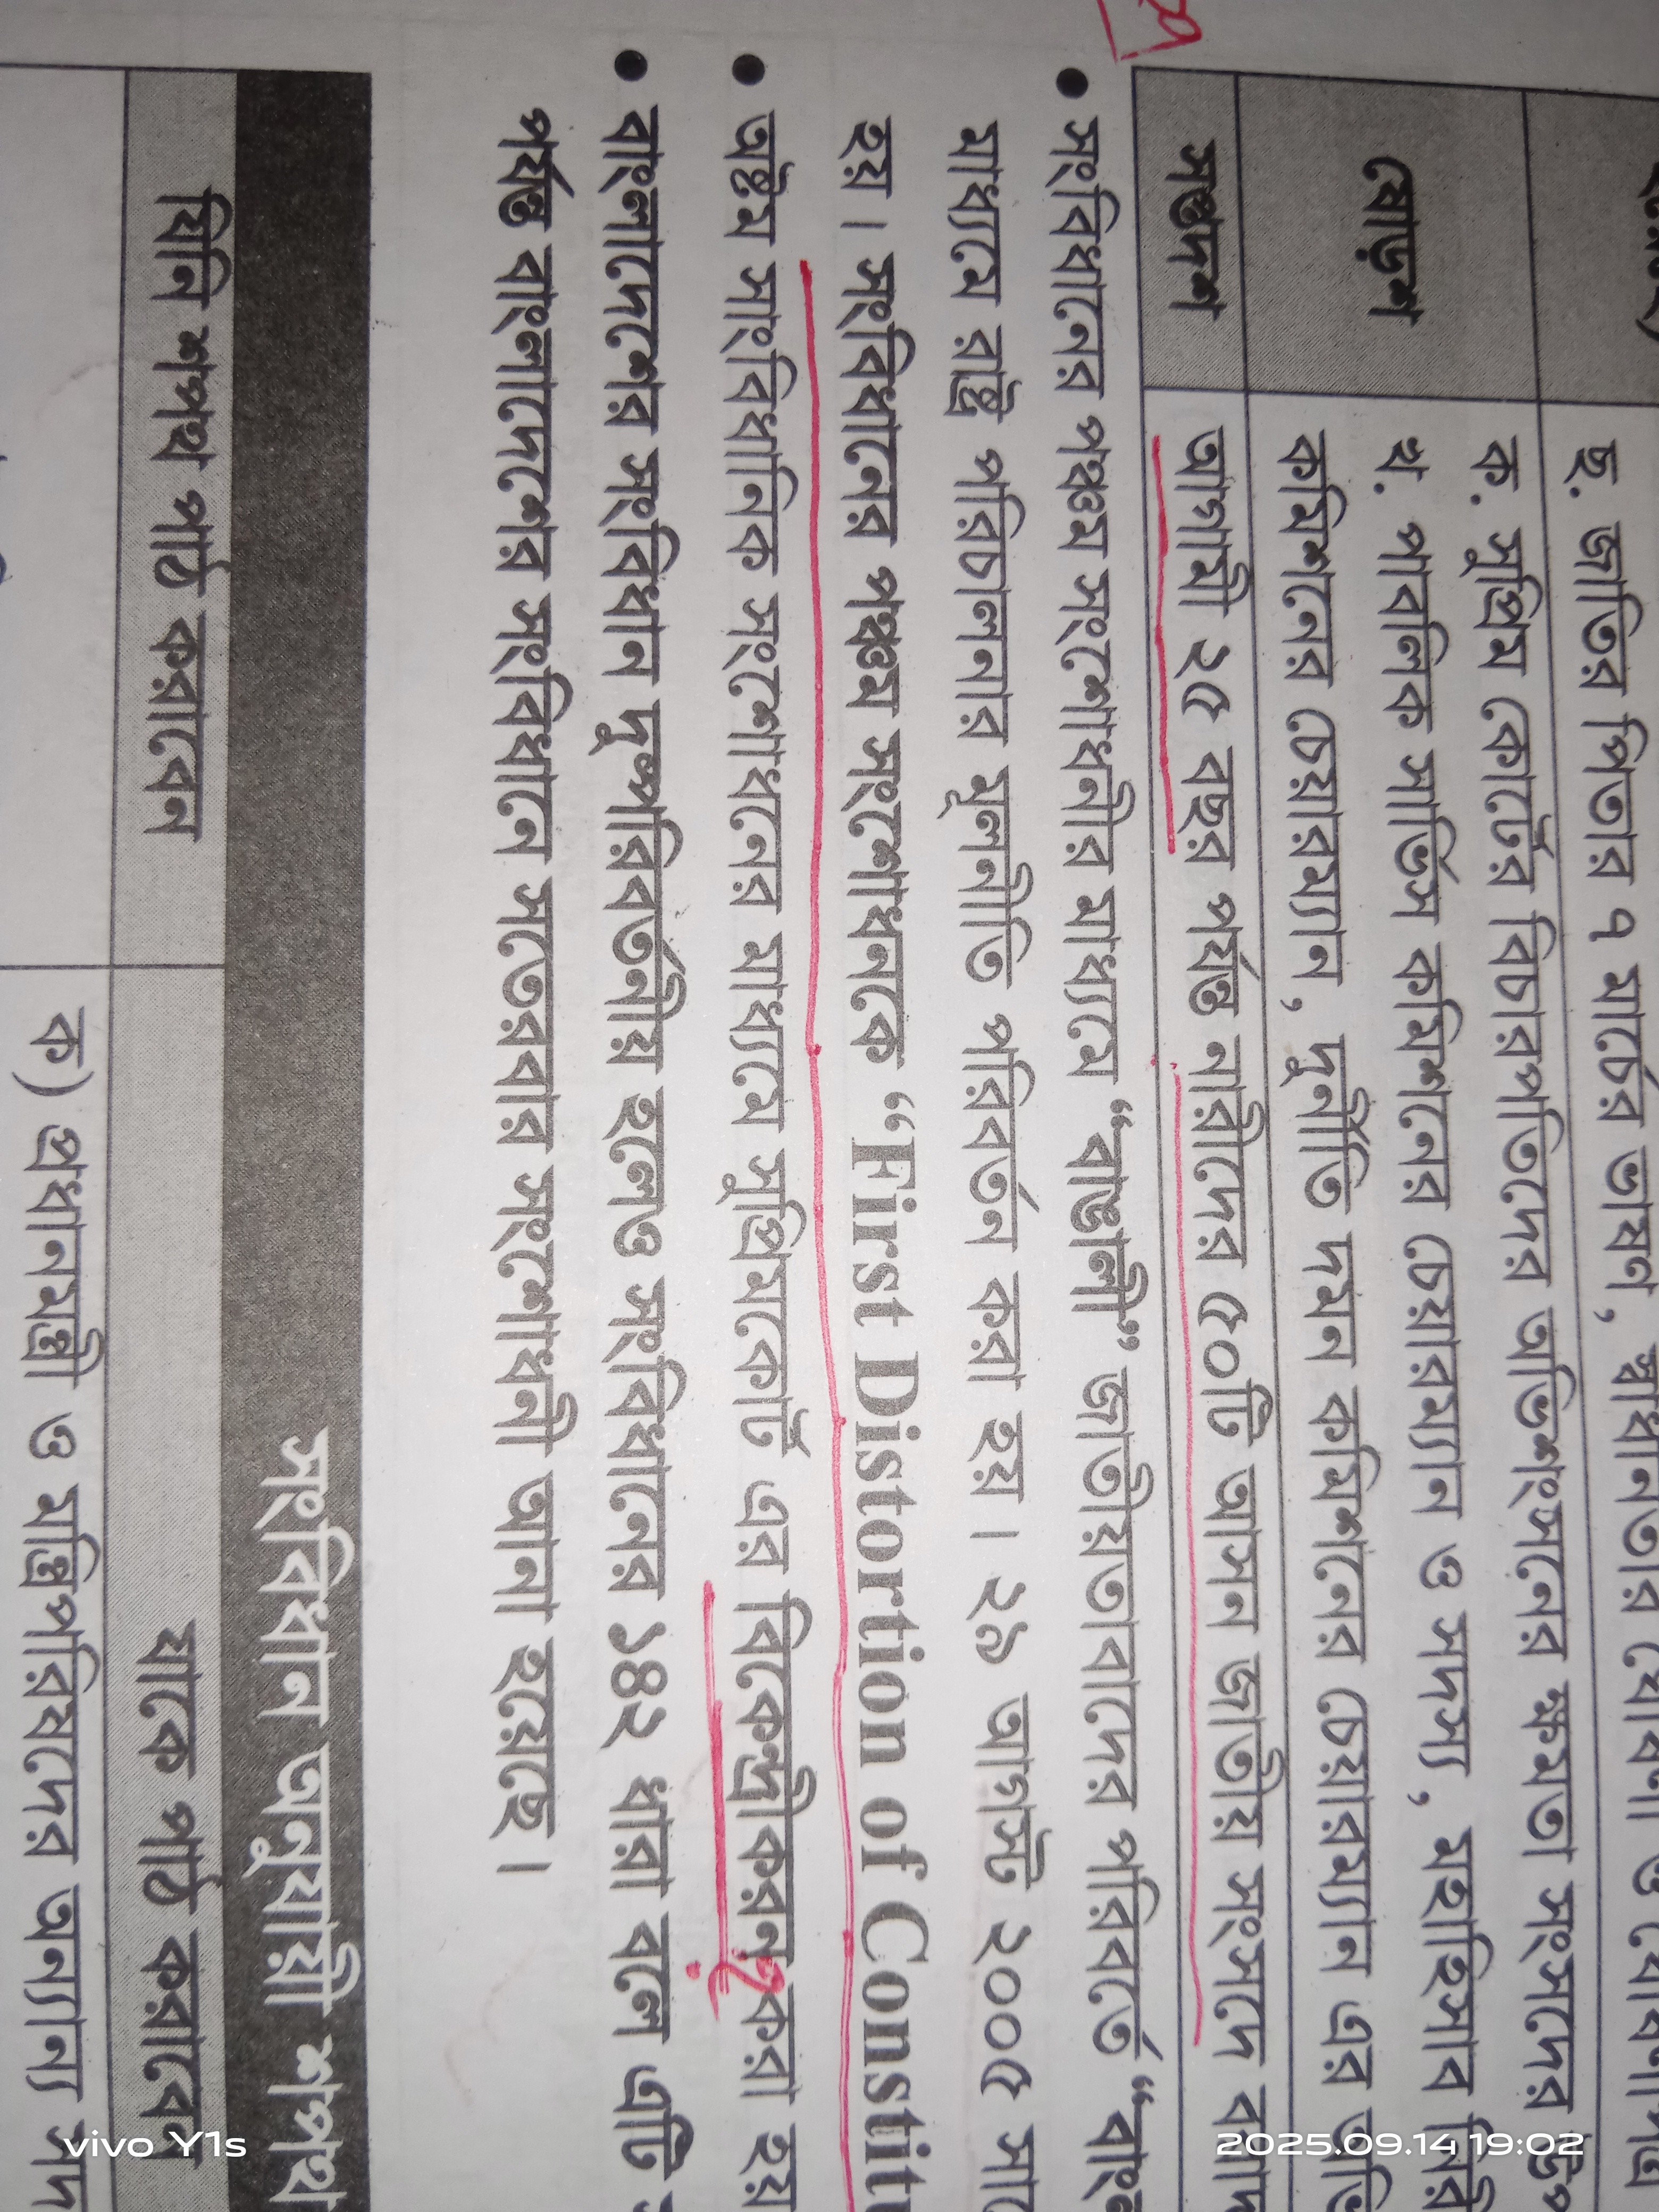 ছ. জাতির পিতার ৭ মার্চের ভাষণ, স্বাধীনতার ঘোষণা ও ঘোষণাপত্র
ষোড়শ
ক. সুপ্রিম কোর্টের বিচারপতিদের অভিশংসনের ক্ষমতা সংসদের
খ. পাবলিক সার্ভিস কমিশনের চেয়ারম্যান ও সদস্য, মহাহিসাব
কমিশনের চেয়ারম্যান, দুর্নীতি দমন কমিশনের চেয়ারম্যান এর
সপ্তদশ
আগামী ২৫ বছর পর্যন্ত নারীদের ৫০টি আসন জাতীয় সংসদে
• সংবিধানের পঞ্চম সংশোধনীর মাধ্যমে “বাঙালী” জাতীয়তাবাদের পরিবর্তে
মাধ্যমে রাষ্ট্র পরিচালনার মূলনীতি পরিবর্তন করা হয়। ২৯ আগস্ট ২০০৫
হয়। সংবিধানের পঞ্চম সংশোধনকে “First Distortion of
• অষ্টম সাংবিধানিক সংশোধনের মাধ্যমে সুপ্রিমকোর্ট এর বিকেন্দ্রীকরন করা হয়
• বাংলাদেশের সংবিধান দুষ্পরিবর্তনীয় হলেও সংবিধানের ১৪২ ধারা বলে এটি
পর্যন্ত বাংলাদেশের সংবিধানে সতেরবার সংশোধনী আনা হয়েছে।
সংবিধান অনুযায়ী শপথ
যিনি শপথ পাঠ করাবেন
যাকে পাঠ করাবেন
ক) প্রধানমন্ত্রী ও মন্ত্রিপরিষদের অন্যান্য
vivo Y1s
2025.09.14 19:02